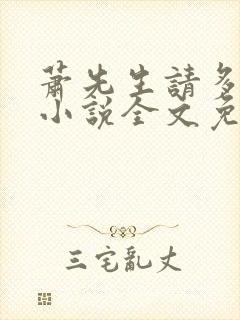 蕭先生請多
小說全文免
三宅亂丈